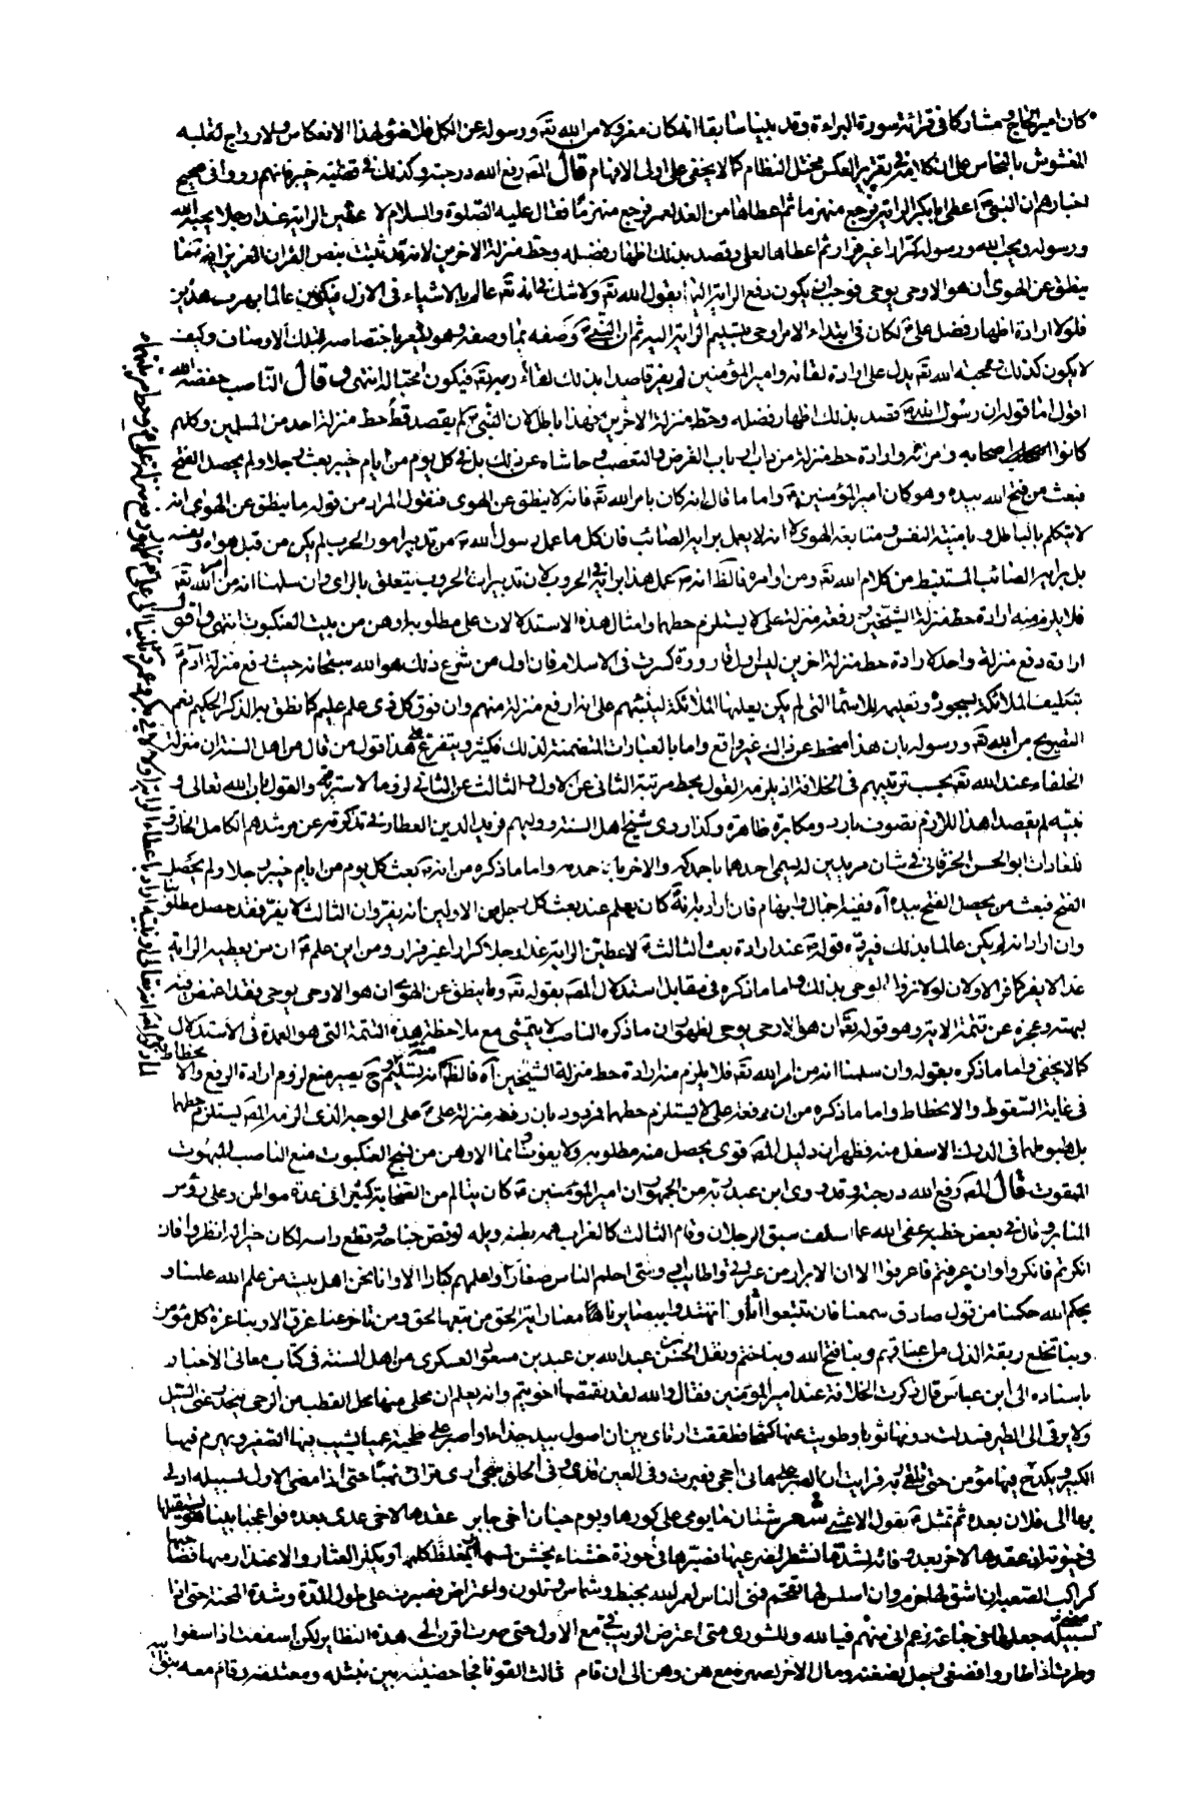 كان امير الحاج ومشاركا فى قرائة سورة البراءة وقد بينا سابقا انه كان معزولا من الله تع ورسوله عن الكل فلا ضوء لهذا الانعكاس ولا رواج لقلبه
المغشوش بالنحاس على ان كلامه فى تقرير العكس مختل النظام كما لا يخفى على اولى الافهام قال المص رفع الله درجته وكذلك فى قضية خيبر فانهم رووا فى صحيح
اخبارهم ان النبى ص اعطى ابا بكر الراية فرجع منهزما ثم اعطاها من الغد لعمر فرجع منهزما فقال عليه الصلوة والسلام لاعطين الراية غدا رجلا يحبه الله
ورسوله ويحب الله ورسوله كرارا غير فرار ثم اعطاها لعلى وقصد بذلك اظهار فضله وحط منزلة الاخرين لانه قد ثبت بنص القران العزيز انه ما
ينطق عن الهوى ان هو الا وحى يوحى فوجب ان يكون دفع الراية اليه بقول الله تع ولا شك فى انه تع عالم بالاشياء فى الازل فيكون عالما بهرب هذين
فلولا ارادة اظهار فضل على لكان فى ابتداء الامر اوحى بتسليم الراية اليه ثم ان النبى ص وصفه بما وصفه وهو يشعر باختصاصه بتلك الاوصاف وكيف
لا يكون كذلك ومحبة الله تع يدل على ارادة لقائه وامير المؤمنين لم يفر قاصدا بذلك لقاء ربه تع فيكون محبا له انتهى وقال الناصب خفضه الله
اقول اما قوله ان رسول الله ص قصد بذلك اظهار فضله وحط منزلة الاخرين فهذا باطل لان النبى ص لم يقصد قط حط منزلة احد من المسلمين وكلهم
كانوا اصحابه وارادة حط منزلة من باب الغرض والتعصب وحاشاه عن ذلك بل فى كل يوم من ايام خيبر بعث رجلا ولم يحصل الفتح
فبعث من فتح الله بيده وهو كان امير المؤمنين واما ما قال انه كان بامر الله تع فانه لا ينطق عن الهوى فنقول المراد من قوله ما ينطق عن الهوى انه
لا يتكلم بالباطل وبامنية النفس ومتابعة الهوى لا انه لا يعمل برايه الصائب فان كل ما عمل رسول الله ص من تدبير امور الحرب لم يكن من قبل هواه ونفسه
بل برايه الصائب المستنبط من كلام الله تع ومن اوامره فالظ انه ص عمل هذا برايه فى الحروب لان تدبيرات الحروب يتعلق بالراى وان سلمنا انه من امر الله تع
فلا يلزم منه ارادة حط منزلة الشيخين ورفعة منزلة على لا يستلزم حطهما وامثال هذه الاستدلالات على مطلوبه اوهن من بيت العنكبوت انتهى واقول
ارادة رفع منزلة واحد لارادة حط منزلة اخرين ليس اول قارورة كسرت فى الاسلام فان اول من شرع ذلك هو الله سبحانه حيث رفع منزلة آدم ع
بتكليف الملائكة بسجوده وتعليمه للاسماء التى لم يكن يعلمها الملائكة لينبئهم على انه ارفع منزلة منهم وان فوق كل ذى علم عليم كما نطق به الذكر الحكيم نعم
التصريح من الله تع ورسوله بان هذا منحط عن ذلك غير واقع واما بالعبارات المتضمنة لذلك فكثير ويتفرع على هذا قول من قال من اهل السنة ان منزلة
الخلفاء عند الله تع بحسب ترتيبهم فى الخلافة اذ يلزم القول بحط مرتبة الثانى عن الاول والثالث عن الثانى لزوما لا سترة فيه والقول بان الله تعالى و
نبيه لم يقصدا هذا اللازم تصوف بارد ومكابرة ظاهرة وكذا روى شيخ اهل السنة ووليهم فريد الدين العطار فى تذكرته عن مرشدهم الكامل الخارق
للعادات ابو الحسن الخرقانى فى شان مريدين له يسمى احدهما باحمد كه والاخر باحمد مه واما ما ذكره من انه بعث كل يوم من ايام خيبر رجلا ولم يحصل
الفتح فبعث من يحصل الفتح بيده آه ففيه اجمال وابهام فان اراد به انه ص كان يعلم عند بعث كل رجل من الاولين انه يفر وان الثالث لا يفر فقد حصل مطلوبنا
وان اراد انه لم يكن عالما بذلك فيرده قوله ص عند ارادة بعث الثالث لاعطين الراية غدا رجلا كرارا غير فرار ومن اين علم ص ان من يعطيه الراية
غدا لا يفر كما فر الاولان لولا نزول الوحى بذلك واما ما ذكره فى مقابل استدلال المص بقوله تع وما ينطق عن الهوى ان هو الا وحى يوحى فقد اغمض فيه
بهته وعجزه عن تتمة الاية وهو قوله تع ان هو الا وحى يوحى لظهور ان ما ذكره الناصب لا يتمشى مع ملاحظة هذه التتمة التى هو العمدة فى الاستدلال
كما لا يخفى واما ما ذكره بقوله وان سلمنا انه من امر الله تع فلا يلزم منه ارادة حط منزلة الشيخين آه فالظ انه تسليم وح يصير منع لزوم ارادة الرفع والانحطاط
فى غاية السقوط والانحطاط واما ما ذكره من ان رفعة على لا يستلزم حطهما فمردود بان رفعة منزلة على على الوجه الذى الزمه المص يستلزم حطهما
بل هبوطهما فى الدرك الاسفل منه فظهر ان دليل المص قوى يحصل منه مطلوبه ولا يفوت وانما الاوهن من نسج العنكبوت منع الناصب المبهوت
الممقوت قال المص رفع الله درجته وقد روى ابن عبد ربه من الجمهور ان امير المؤمنين كان يتالم من الصحابة كثيرا فى عدة مواطن وعلى رؤس
المنابر وقال فى بعض خطبه عفى الله عما سلف سبق الرجلان وقام الثالث كالغراب همه بطنه ويله لو قص جناحه وقطع راسه لكان خيرا له انظروا فان
انكرتم فانكروا وان عرفتم فاعرفوا الا ان الابرار من عترتى واطايب ارومتى احلم الناس صغارا واعلمهم كبارا الا وانا نحن اهل بيت من علم الله علمنا و
بحكم الله حكمنا من قول صادق سمعنا فان تتبعوا آثارنا تهتدوا ببصايرنا معنا راية الحق من تبعها لحق ومن تاخر عنها غرق الا وبنا عزة كل مؤمن
وبنا تخلع ربقة الذل من اعناقهم وبنا فتح الله وبنا ختم ونقل الحسن بن عبد الله بن مسعود العسكرى من اهل السنة فى كتاب معانى الاخبار
باسناده الى ابن عباس قال ذكرت الخلافة عند امير المؤمنين فقال والله لقد تقمصها اخو تيم وانه يعلم ان محلى منها محل القطب من الرحى ينحدر عنى السيل
ولا يرقى الى الطير فسدلت دونها ثوبا وطويت عنها كشحا وطفقت ارتاى بين ان اصول بيد جذاء او اصبر على طخية عمياء يشيب فيها الصغير ويهرم فيها
الكبير ويكدح فيها مؤمن حتى يلقى ربه فرايت ان الصبر على هاتى احجى فصبرت وفى العين قذى وفى الحلق شجى ارى تراثى نهبا حتى اذا مضى الاول لسبيله ادلى
بها الى فلان بعده ثم تمثل بقول الاعشى شعر شتان ما يومى على كورها ويوم حيان اخى جابر عقدها لاخى عدى بعده فوا عجبا بينا هو يستقيلها
فى حيوته اذ عقدها لاخر بعد وفاته لشد ما تشطرا ضرعيها فصيرها فى حوزة خشناء يخشن لمسها ويغلظ كلمها ويكثر العثار والاعتذار منها فصاحبها
كراكب الصعبة ان اشنق لها خرم وان اسلس لها تقحم فمنى الناس لعمر الله بخبط وشماس وتلون واعتراض فصبرت على طول المدة وشدة المحنة حتى اذا
مضى لسبيله جعلها فى جماعة زعم انى منهم فيا لله وللشورى متى اعترض الريب فى مع الاول حتى صرت اقرن الى هذه النظاير لكن اسففت اذ اسفوا
وطرت اذ طاروا فصغى رجل لضغنه ومال الاخر لصهره مع هن وهن الى ان قام ثالث القوم نافجا حضنيه بين نثيله ومعتلفه وقام معه بنو ابيه